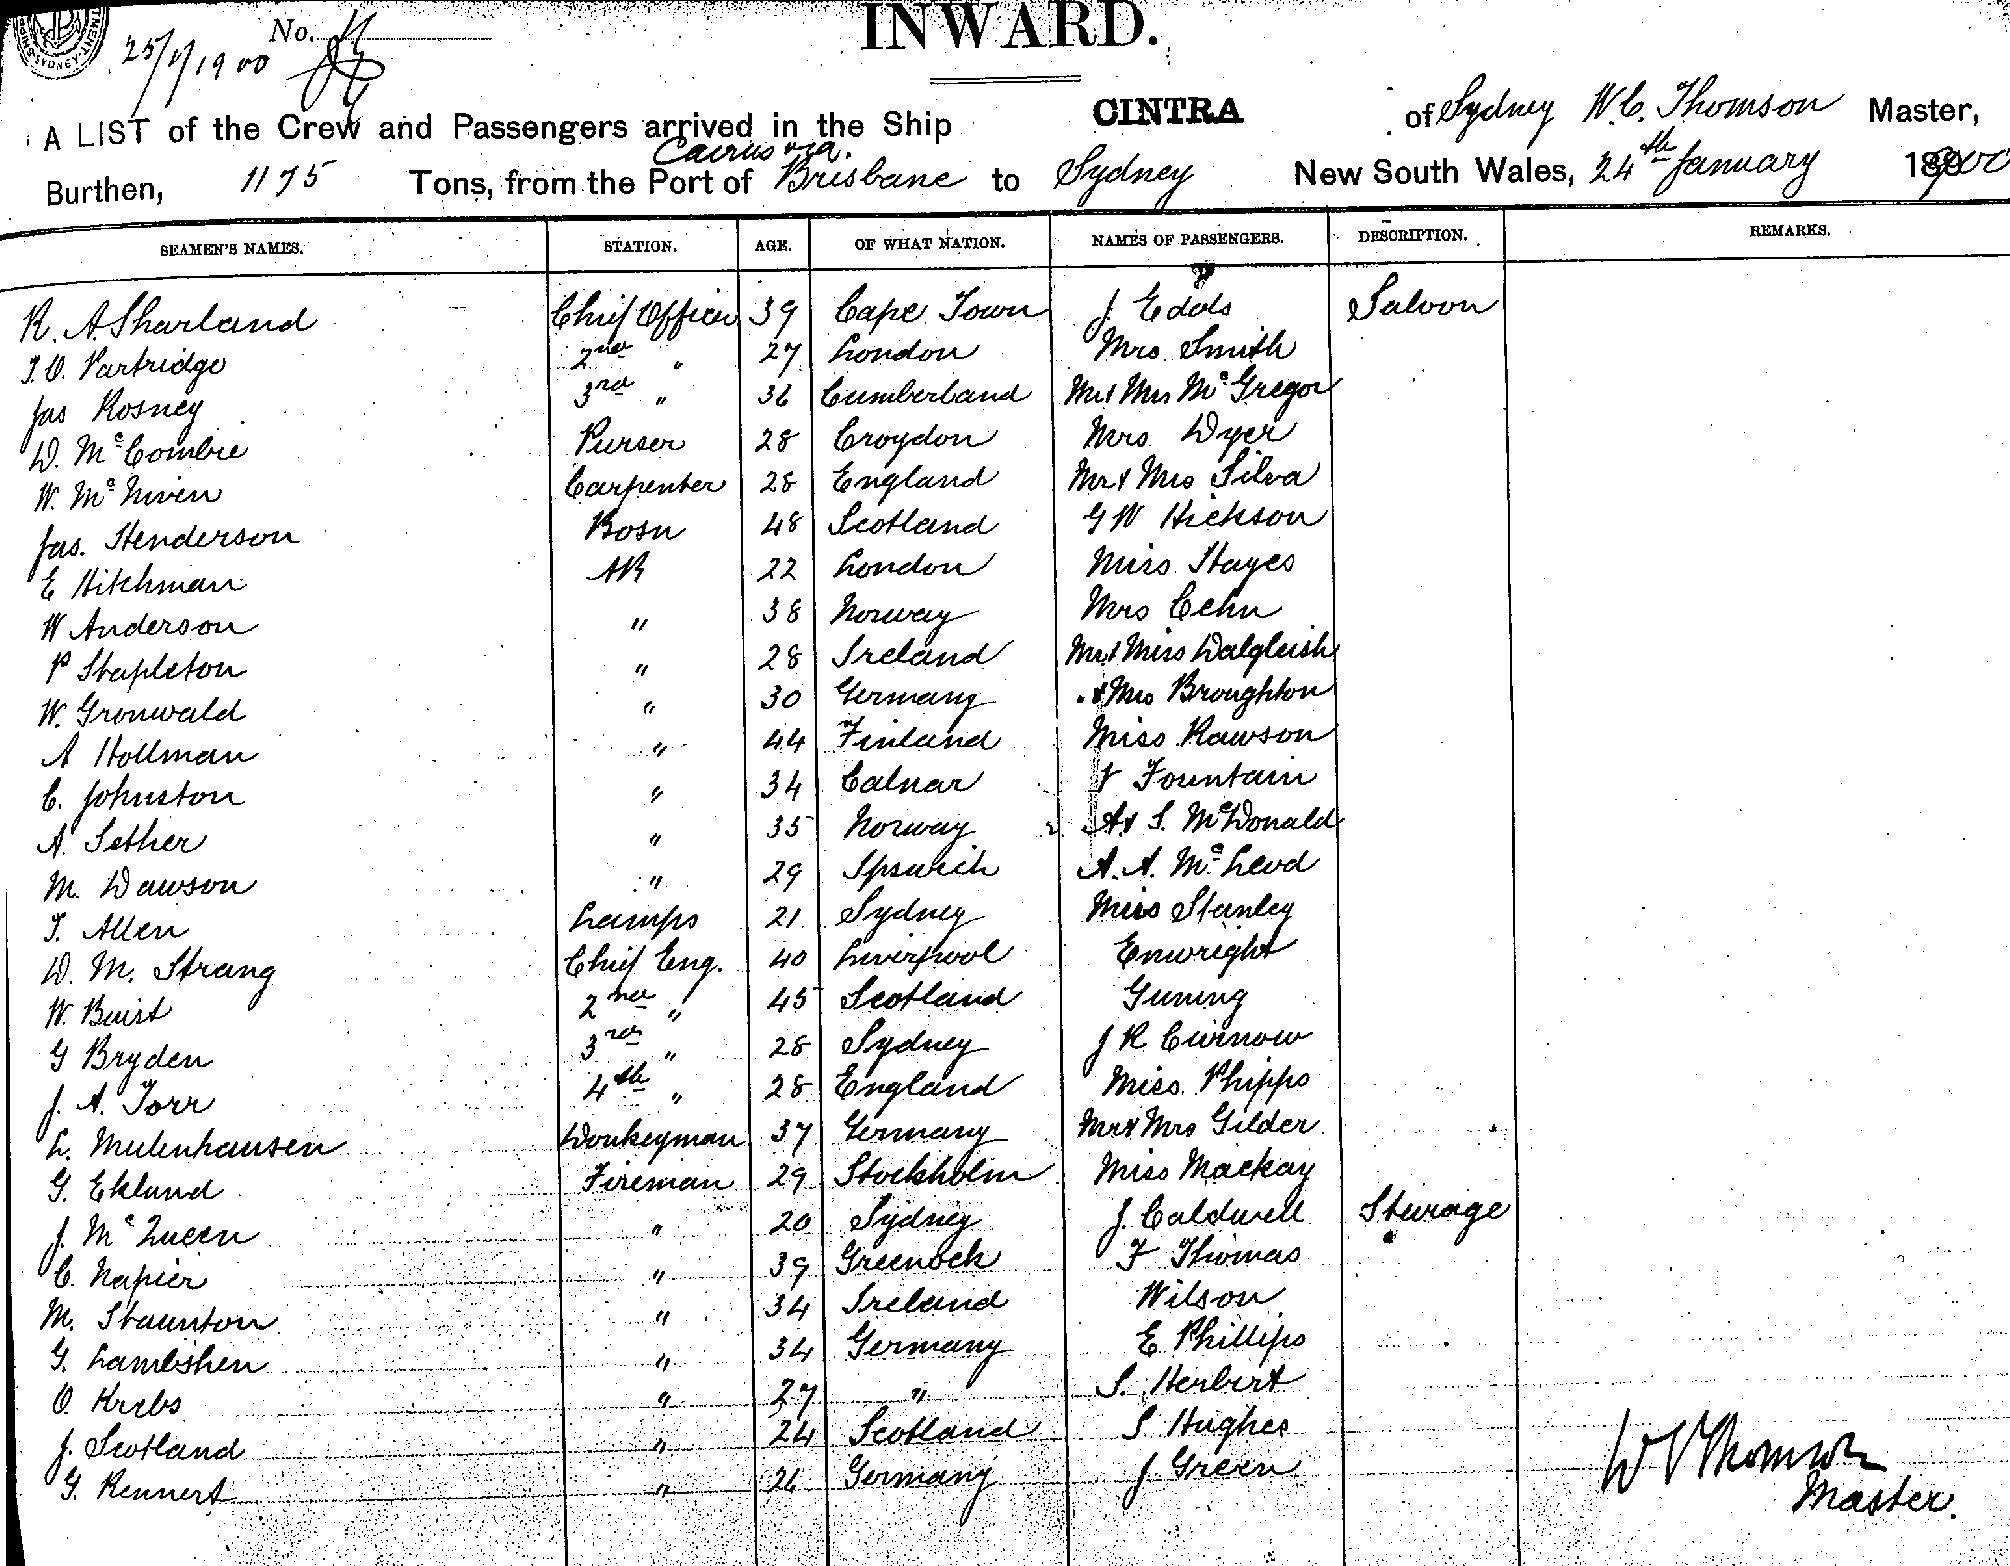 25/1/1900 No.
INWARD.
A LIST of the Crew and Passengers arrived in the Ship CINTRA of Sydney W. C. Thomson Master,
Cairns via.
Burthen, 1175 Tons, from the Port of Brisbane to Sydney New South Wales, 24th January 1900
SEAMEN'S NAMES. STATION. AGE. OF WHAT NATION. NAMES OF PASSENGERS. DESCRIPTION. REMARKS.
R. A. Sharland Chief Officer 39 Cape Town J Edols Saloon
T. O. Partridge 2nd " 27 London Mrs Smith
Jas Rosney 3rd " 36 Cumberland Mr & Mrs McGregor
D. McCombie Purser 28 Croydon Mrs Dyer
W. McNiven Carpenter 28 England Mr & Mrs Silva
Jas. Henderson Bosn 48 Scotland G W Hickson
E Hitchman AB 22 London Miss Hayes
W Anderson " 38 Norway Mrs Cehn
P Stapleton " 28 Ireland Mr & Miss Dalgleish
W. Gronwald " 30 Germany " & Mrs Broughton
A Hollman " 44 Finland Miss Rawson
C. Johnston " 34 Calnar J Fountain
A. Sether " 35 Norway A & S. McDonald
M. Dawson " 29 Ipswich A. A. McLeod
T. Allen Lamps 21 Sydney Miss Stanley
D. M. Strang Chief Eng. 40 Liverpool Enwright
W. Buist 2nd " 45 Scotland Guning
G Bryden 3rd " 28 Sydney J R Curnow
J. A. Torr 4th " 28 England Miss Phipps
L. Mulenhausen Donkeyman 37 Germany Mr & Mrs Gilder
G. Eklund Fireman 29 Stockholm Miss Mackay
J. McQueen " 20 Sydney J. Caldwell Sturage
C. Napier " 39 Greenock F Thomas
M. Staunton " 34 Ireland Wilson
G. Lambshen " 34 Germany E Phillips
O. Krebs " 27 " S. Herbert
J. Scotland " 24 Scotland S Hughes
G. Rennert " 26 Germany J Green
W C Thomson
Master.